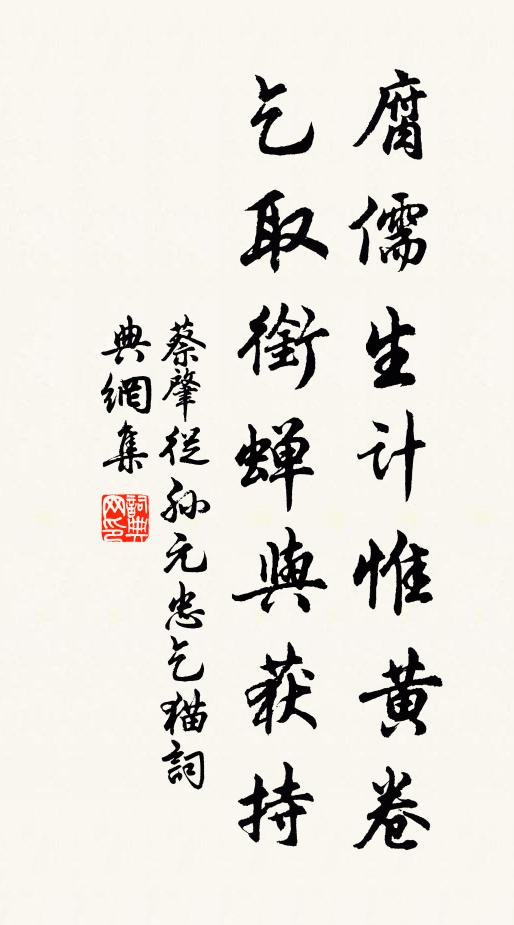 腐儒生计惟黄卷
乞取衔蝉與获持
蔡肇從孙元忠乞猫詞
典網集
詞典网印